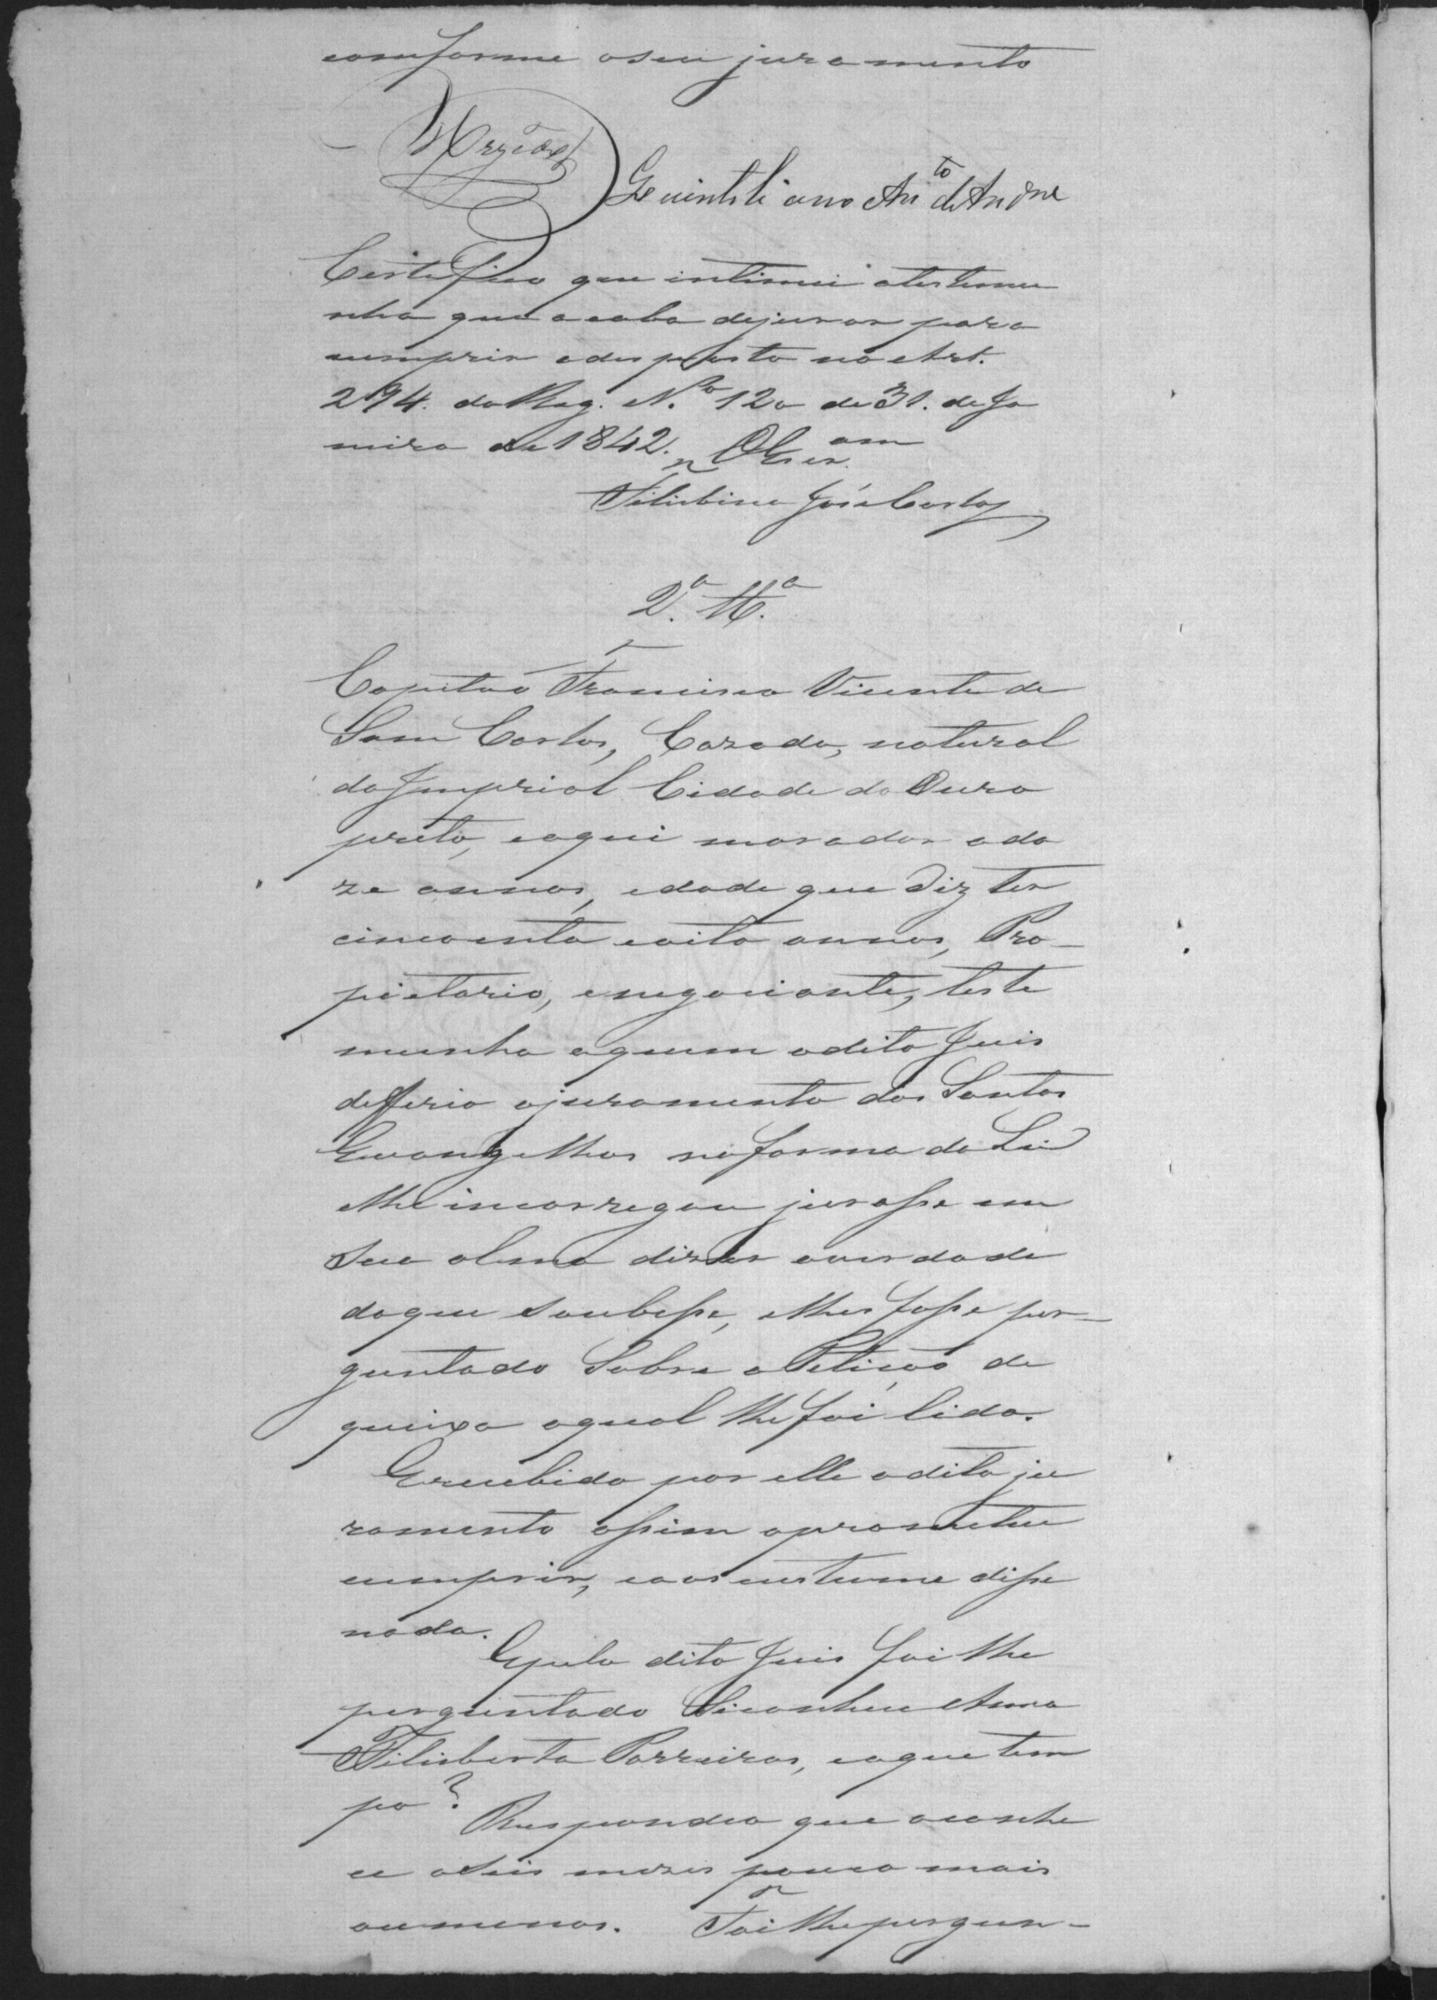 comforme o seu juramento
Quintiliano An.to de Andre
Certefico que intimei atestemu
nha que acaba dejurar para
cumprir odesposto no Art.
294. do Reg. N.º 120 de 31. de Ja
neiro de 1842. OEscr.am
Felisbino José Carlos
2.a Tt.a
Capitaó Francisco Vicente de
Sam Carlos, Cazado, natural
da Imprial Cidade do Ouro
preto, eaqui morador ado
ze annos, edade que diz ter
cincoenta eoito annos, Pro-
pietario, enegociante, teste
munha aquem odito Juis
defferio ojuramento dos Santos
Evangelhos naforma da Lei
elhe incarregou jurasse em
sua alma dizer averdade
doque soubesse, elhes fosse per-
guntado Sobre aPetiçaó de
queixa aqual lhe foi lida.
Erecebido por elle odito ju
ramento assim oprometeu
cumprir, eaos custume disse
nada.
Epelo dito Juis foi lhe
perguntado Seconhece Anna
Felisberta Parreiras, eaque tem
po?
Respondeo que aconhe
ce aSeis mezes pouco mais
oumenos. Foi lhe pergun-